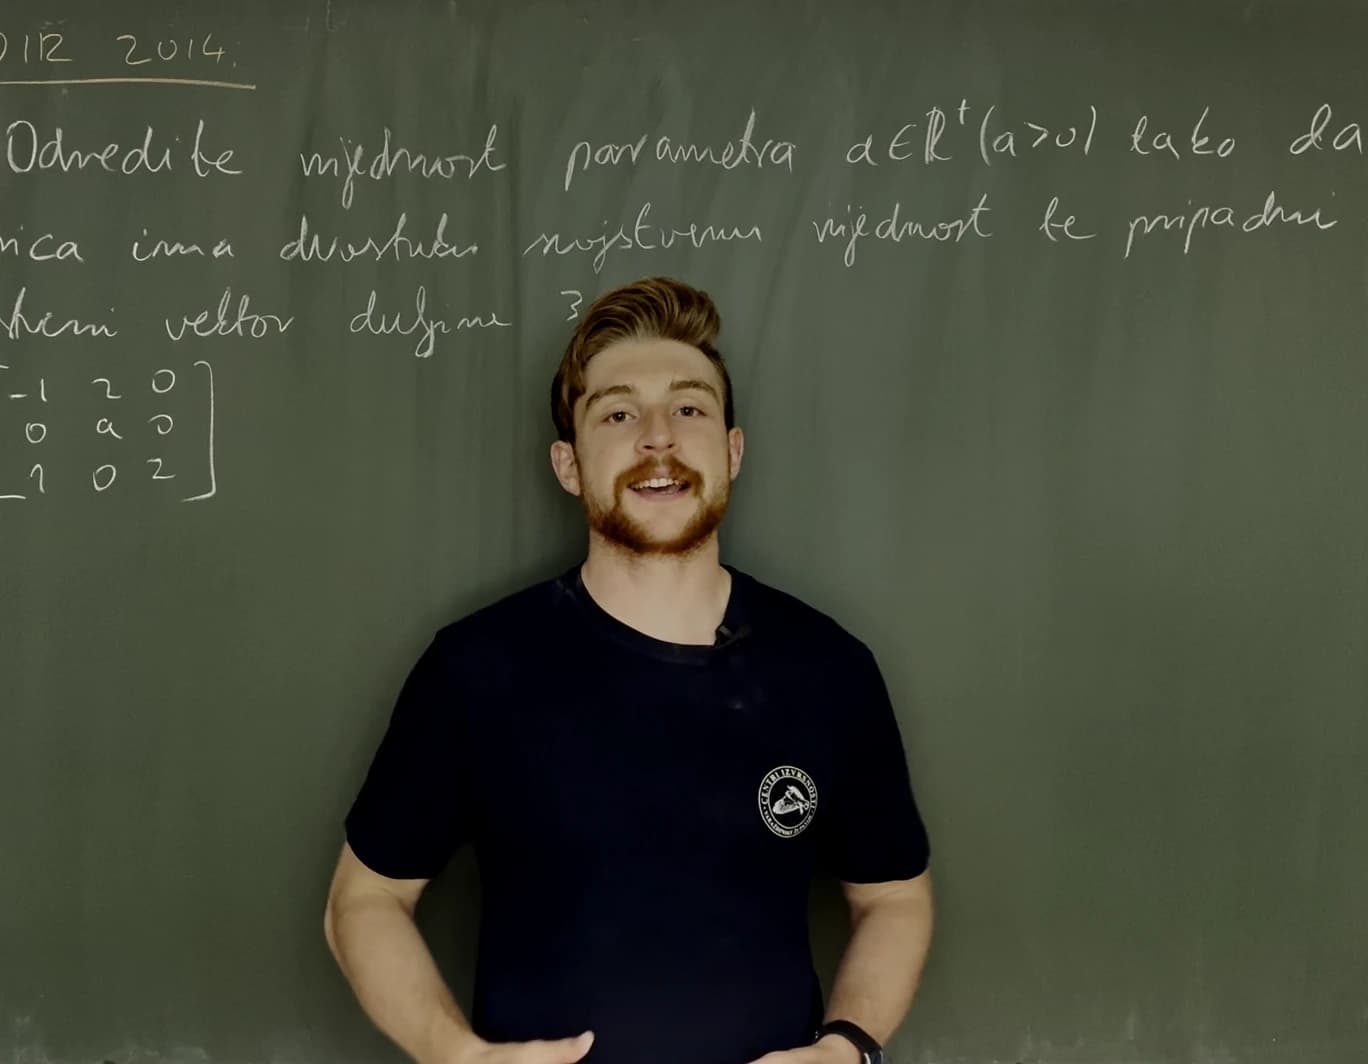 DIR 2014.
Odredite vrijednost parametra a∈R⁺ (a>0) tako da
ica ima dvostuku svojstvenu vrijednost te pripadni
stveni vektor duljine 3
-1 2 0
0 a 0
1 0 2
CENTRI IZVRSNOSTI